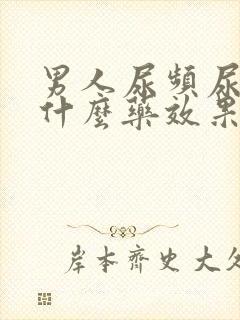 男人尿頻尿
什麼藥效果
岸本齊史大久